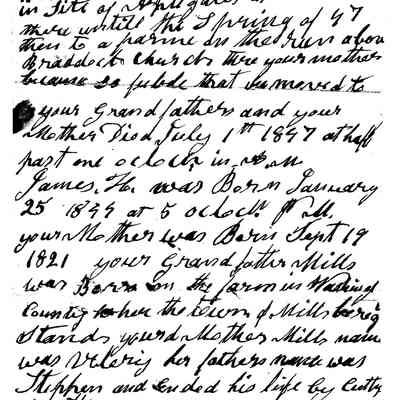 in Site of
there untill the Spring of 47
then to a farme on the run above
Braddock church there your mother
because so feble that we moved to
your Grandfathers and your
Mother Died July 1th 1847 at half
past one oclock in M
James. H. was Born January
25 1844 at 5 oclock P M.
your Mother was Born Sept 19
1821 your Grandfather Mills
was Borne on the farm in
County wher the town of Mills
Stands yourd Mother Mills name
was Valeriy her fathers name was
Stephen and Ended his life by Cutty